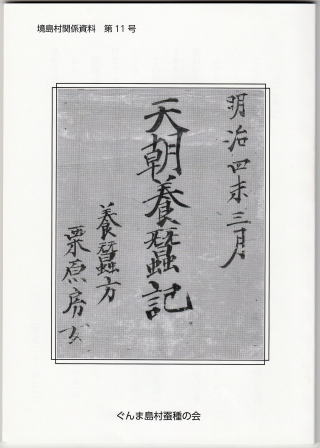 境島村関係資料 第11号
明治四未三月
天朝養蚕記
養蚕方
栗原房
ぐんま島村蚕種の会